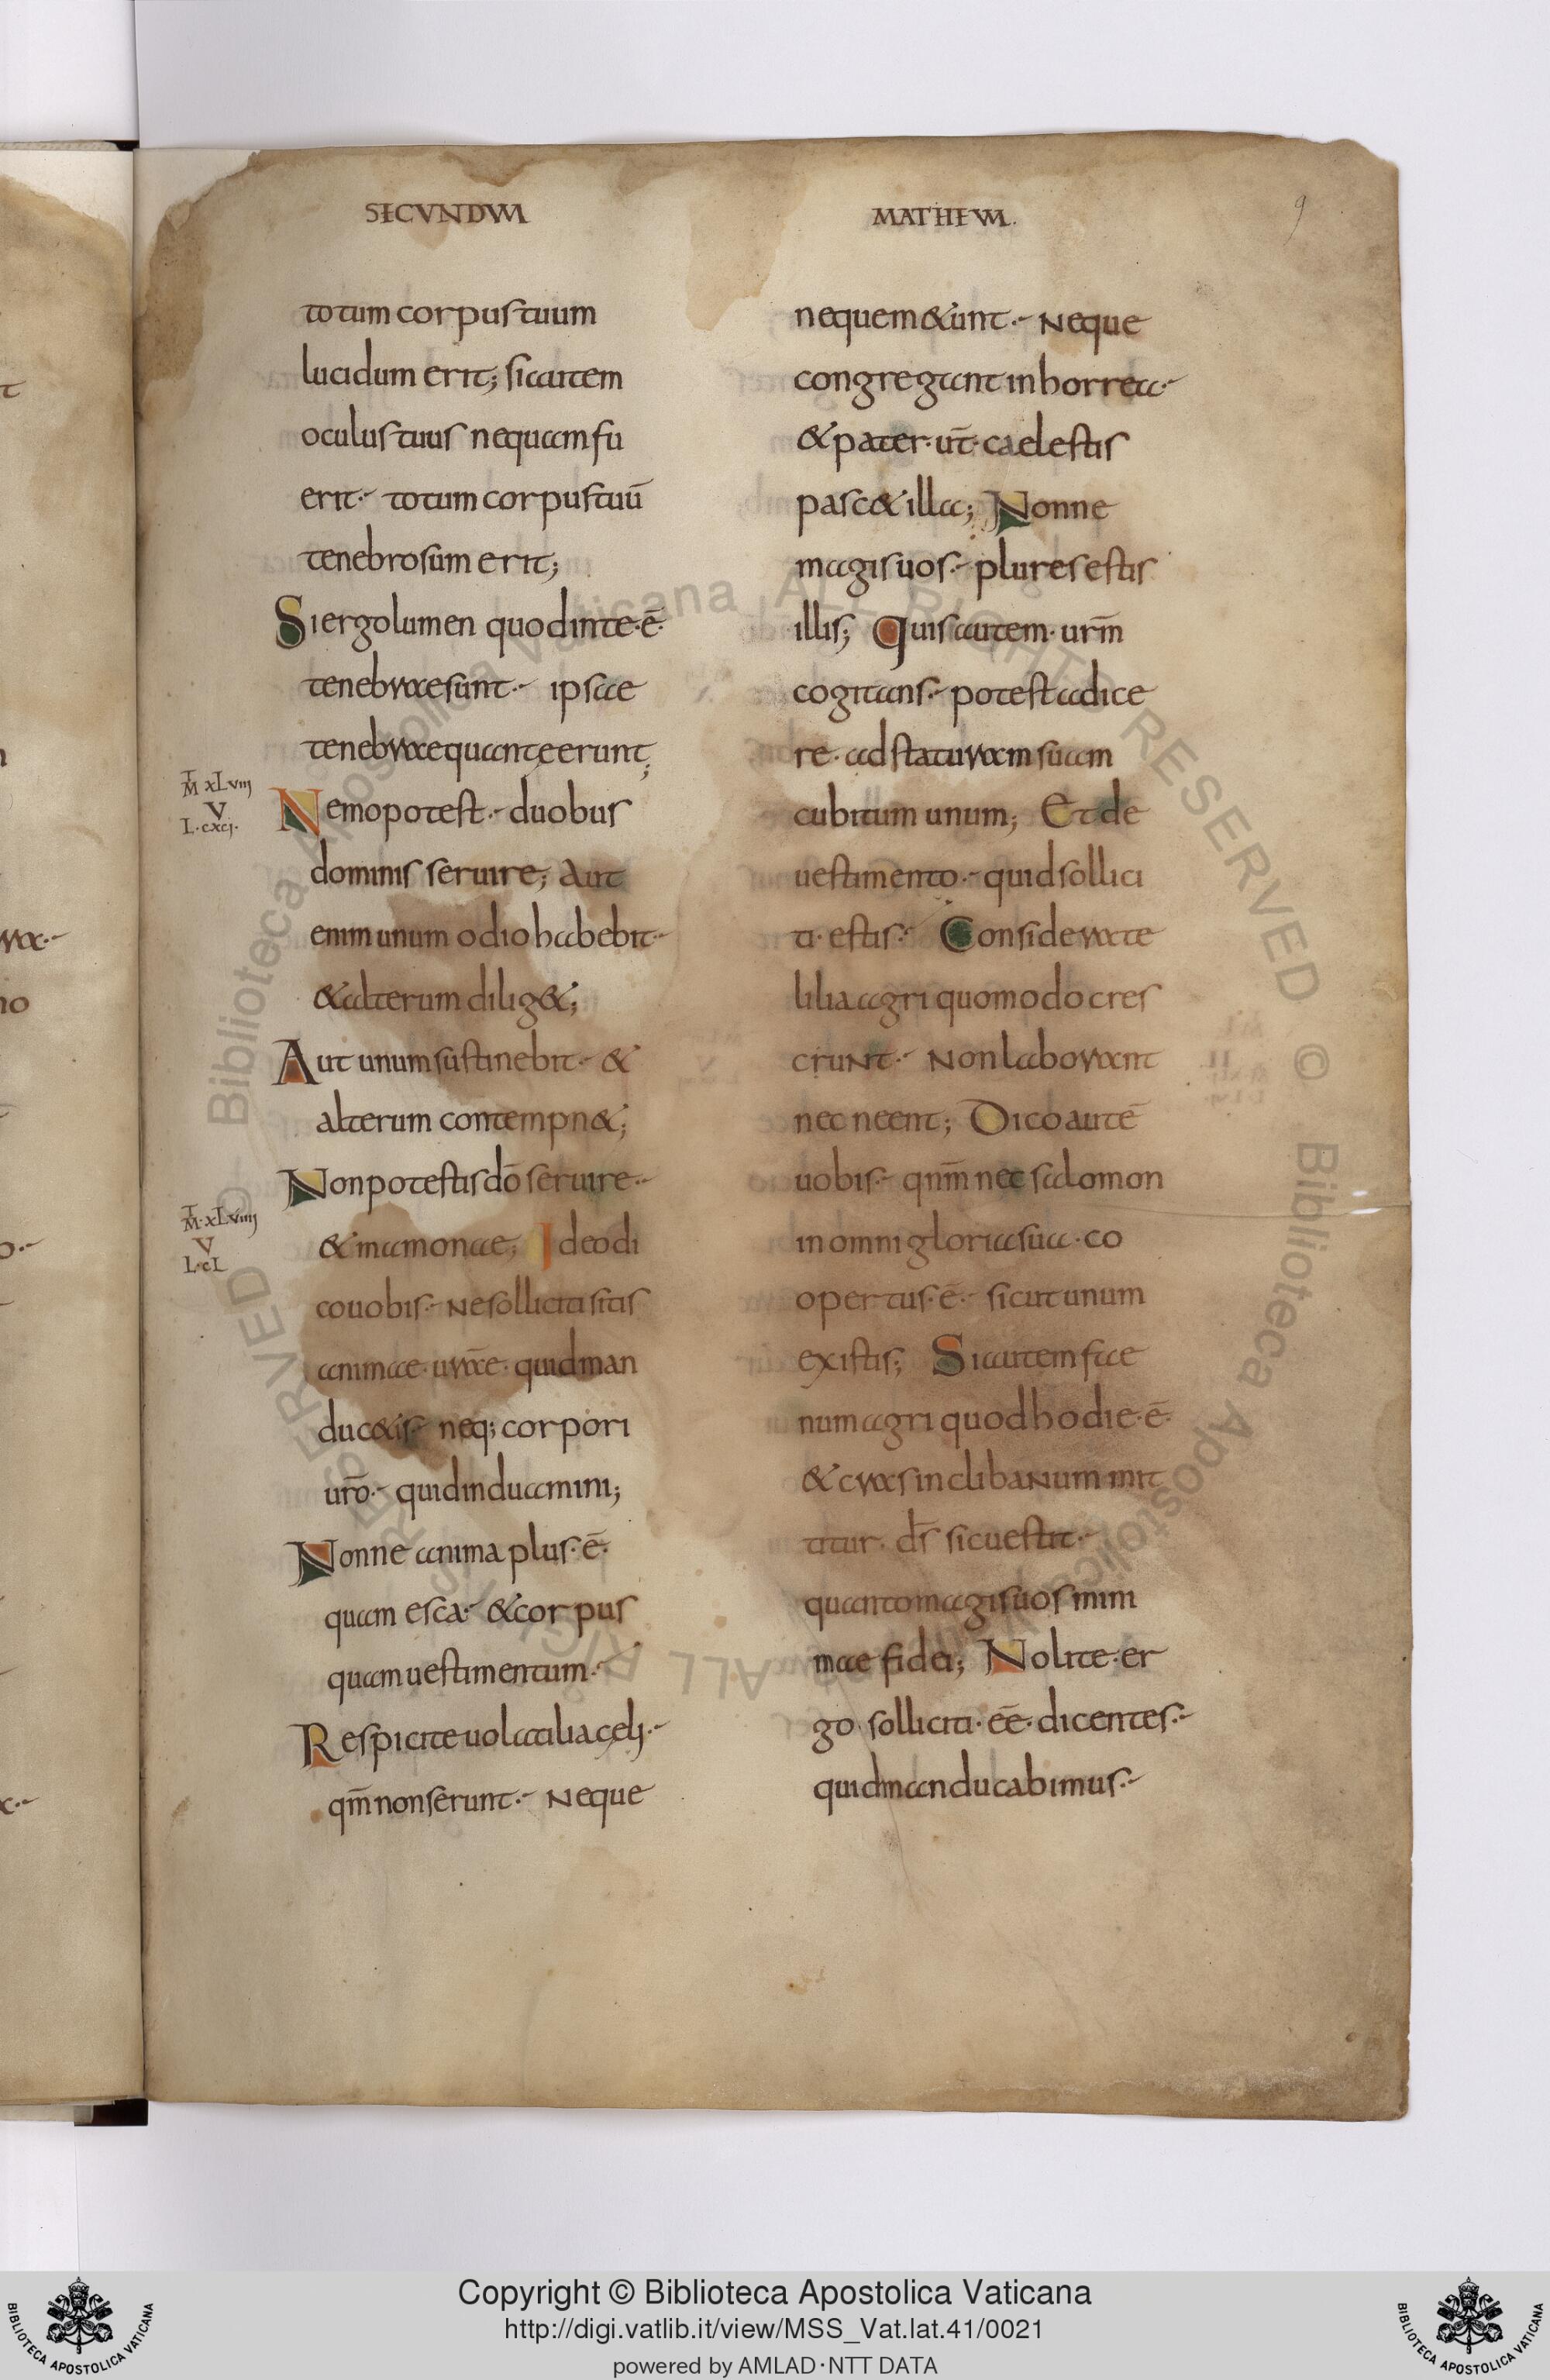 SECVNDVM
MATHEVM.
9
totum corpus tuum
lucidum erit; si autem
oculus tuus nequam fu
erit·- totum corpus tuū
tenebrosum erit;
Si ergo lumen quod in te·ē·
tenebrae sunt·- ipsae
tenebrae quantę erunt;
T
M xLviiij
V
L·cxcj·
Nemo potest·- duobus
dominis seruire; Aut
enim unum odio habebit·-
& alterum dilig&;
Aut unum sustinebit·- &
alterum contempn&;
Non potestis dō seruire·-
T
M·xLviiij
V
L·cL
& mamonae; Ideo di
co uobis·- Ne solliciti sitis
animae·urāe·quid man
duc&is·- neq; corpori
urō·- quid induamini;
Nonne anima plus·ē·
quam esca·- & corpus
quam uestimentum·-
Respicite uolatilia cęlj·-
qm̄ non serunt·- Neque
neque m&unt·- Neque
congregant in horrea·-
& pater·ur̄·caelestis
pasc& illa; Nonne
magis uos·- plures estis
illis; Quis autem·urm̄
cogitans·- potest adice
re·ad staturam suam
cubitum unum; Et de
uestimento·- quid sollici
ti·estis·- Considerate
lilia agri quomodo cres
crunt·- Non laborant
nec neent; Dico autē
uobis·- qnm̄ nec salomon
in omni gloria sua·co
opertus·ē·- sicut unum
ex istis; Si autem fae
num agri quod hodie·ē·
& cras in clibanum mit
titur·ds̄ sic uestit·-
quanto magis uos mini
mae fidei; Nolite·er
go·solliciti·eē·dicentes·-
quid manducabimus·-
Copyright © Biblioteca Apostolica Vaticana
http://digi.vatlib.it/view/MSS_Vat.lat.41/0021
powered by AMLAD·NTT DATA
BIBLIOTECA APOSTOLICA VATICANA
BIBLIOTECA APOSTOLICA VATICANA